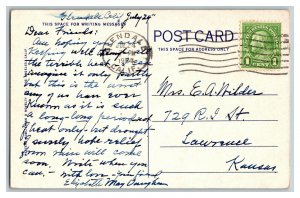 Glendale, Calif July 24"
THIS SPACE FOR WRITING MESSAGES
POST CARD
THIS SPACE FOR ADDRESS ONLY
Dear Friends:
Am hoping you are
keeping well thru all
the terrible heat. I can
imagine it only partly
but this is the worst
any has ever
known as it is such
a long-long period of
heat only but drought
surely hope relief
soon will come
soon. Write when you
can, - with love - your friend
Elizabeth May
Mrs. E. A. Wilder
729 R. I. St
Lawrence
Kansas
1